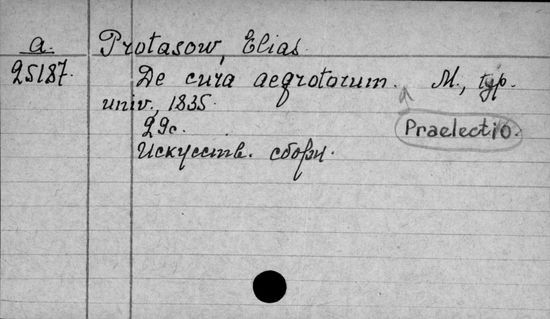 a. Protasow, Elias.
25187. De cura aegrotorum. M., typ.
univ., 1835.
Praelectio.
29c.
Искусств. сборн.